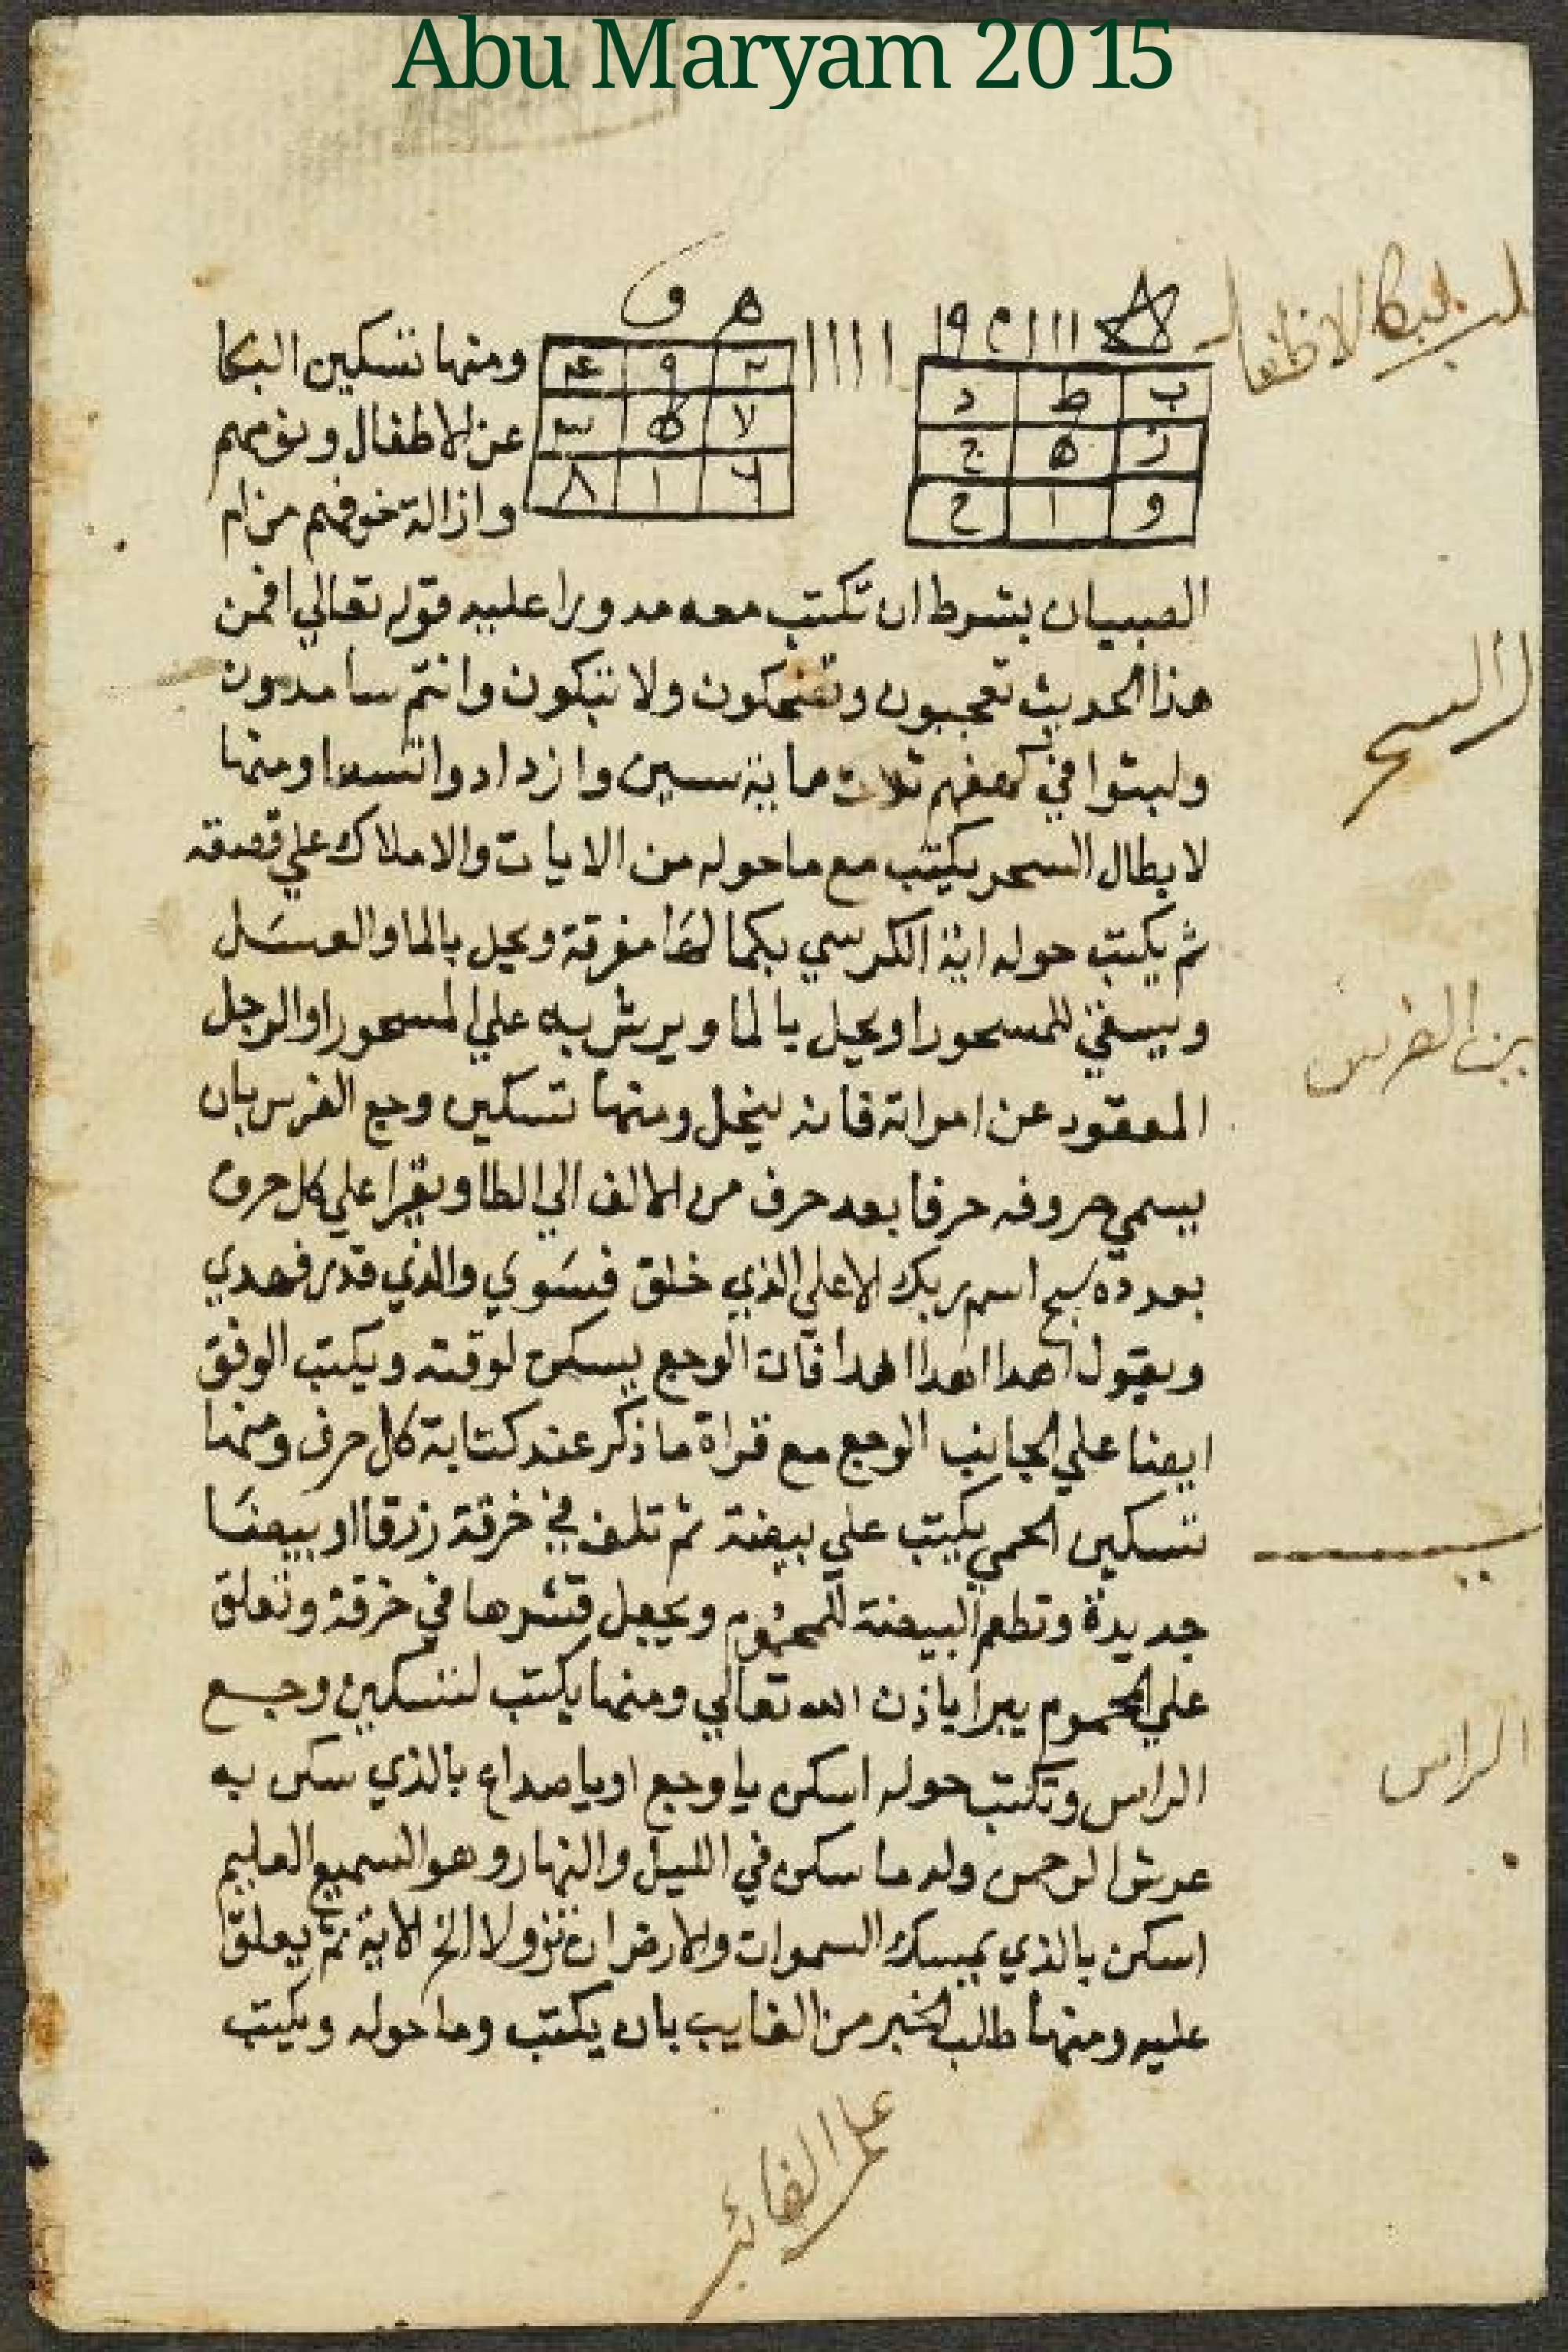 Abu Maryam 2015
لبكا الاطفال
ب ط د
ز ه ج
و ا ح
ومنها تسكين البكا
عن الاطفال ونومهم
وازالة خوفهم من ام
الصبيان بشرط ان تكتب معه مدورا عليه قوله تعالي افمن
هذا الحديث تعجبون وتضحكون ولا تبكون وانتم سامدون
ولبثوا في كهفهم ثلاث ماية سنين وازدادوا تسعا ومنها
لابطال السحر يكتب مع ما حوله من الايات والاملاك علي قصعة
ثم يكتب حوله اية الكرسي بكمالها مفرقة ويحل بالما والعسل
ويسقي للمسحور او يحل بالما ويرش به علي المسحور او الرجل
المعقود عن امراته فانه ينحل ومنها تسكين وجع الضرس بان
يسمي حروفه حرفا بعد حرف من الالف الي الطا ويقرا علي كل حرف
بعدده سبح اسم ربك الاعلي الذي خلق فسوي والذي قدر فهدي
ويقول اهدا اهدا اهدا فان الوجع يسكن لوقته ويكتب الوفق
ايضا علي الجانب الوجع مع قراة ما ذكر عند كتابة كل حرف ومنها
تسكين الحمي يكتب علي بيضة ثم تلف في خرقة زرقا او بيضا
جديدة وتطعم البيضة للمحموم ويجعل قشرها في خرقة وتعلق
علي المحموم يبرا باذن الله تعالي ومنها يكتب لتسكين وجع
الراس وتكتب حوله اسكن يا وجع او يا صداع بالذي سكن به
عرش الرحمن وله ما سكن في الليل والنهار وهو السميع العليم
اسكن بالذي يمسك السموات والارض ان تزولا الخ الاية ثم يعلق
عليه ومنها طلب الخبر من الغايب بان يكتب وما حوله ويكتب
السحر
الضرس
الراس